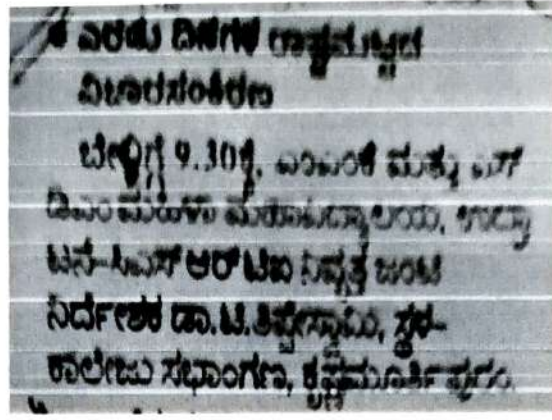 * ಎರಡು ದಿನಗಳ ರಾಷ್ಟ್ರಮಟ್ಟದ
ವಿಚಾರಸಂಕಿರಣ
ಬೆಳಿಗ್ಗೆ 9.30ಕ್ಕೆ, ಎಂಎಂಕೆ ಮತ್ತು ಎಸ್
ಡಿಎಂ ಮಹಿಳಾ ಮಹಾವಿದ್ಯಾಲಯ, ಉದ್ಘಾ
ಟನೆ-ಸಿಎಸ್ ಆರ್ ಟಿಐ ನಿವೃತ್ತ ಜಂಟಿ
ನಿರ್ದೇಶಕ ಡಾ.ಟಿ.ತಿಪ್ಪೇಸ್ವಾಮಿ, ಸ್ಥಳ-
ಕಾಲೇಜು ಸಭಾಂಗಣ, ಕೃಷ್ಣಮೂರ್ತಿಪುರಂ.